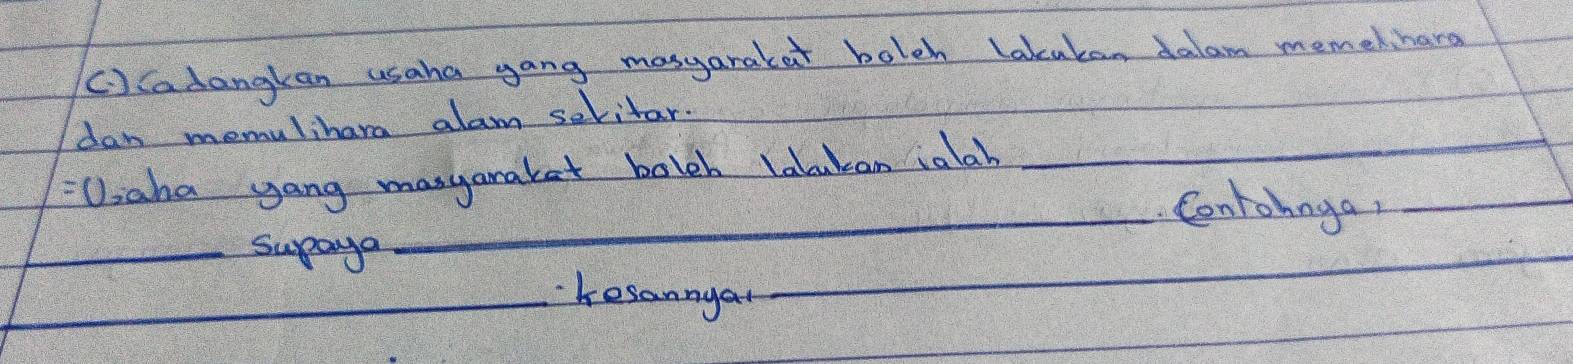 (C.) Cadangkan usaha yang masyarakat boleh lakukan dalam memelihara
dan memulihara alam sekitar.
= Usaha yang masyarakat boleh lakukan ialah
Supaya . Contohnya,
. kesannya,